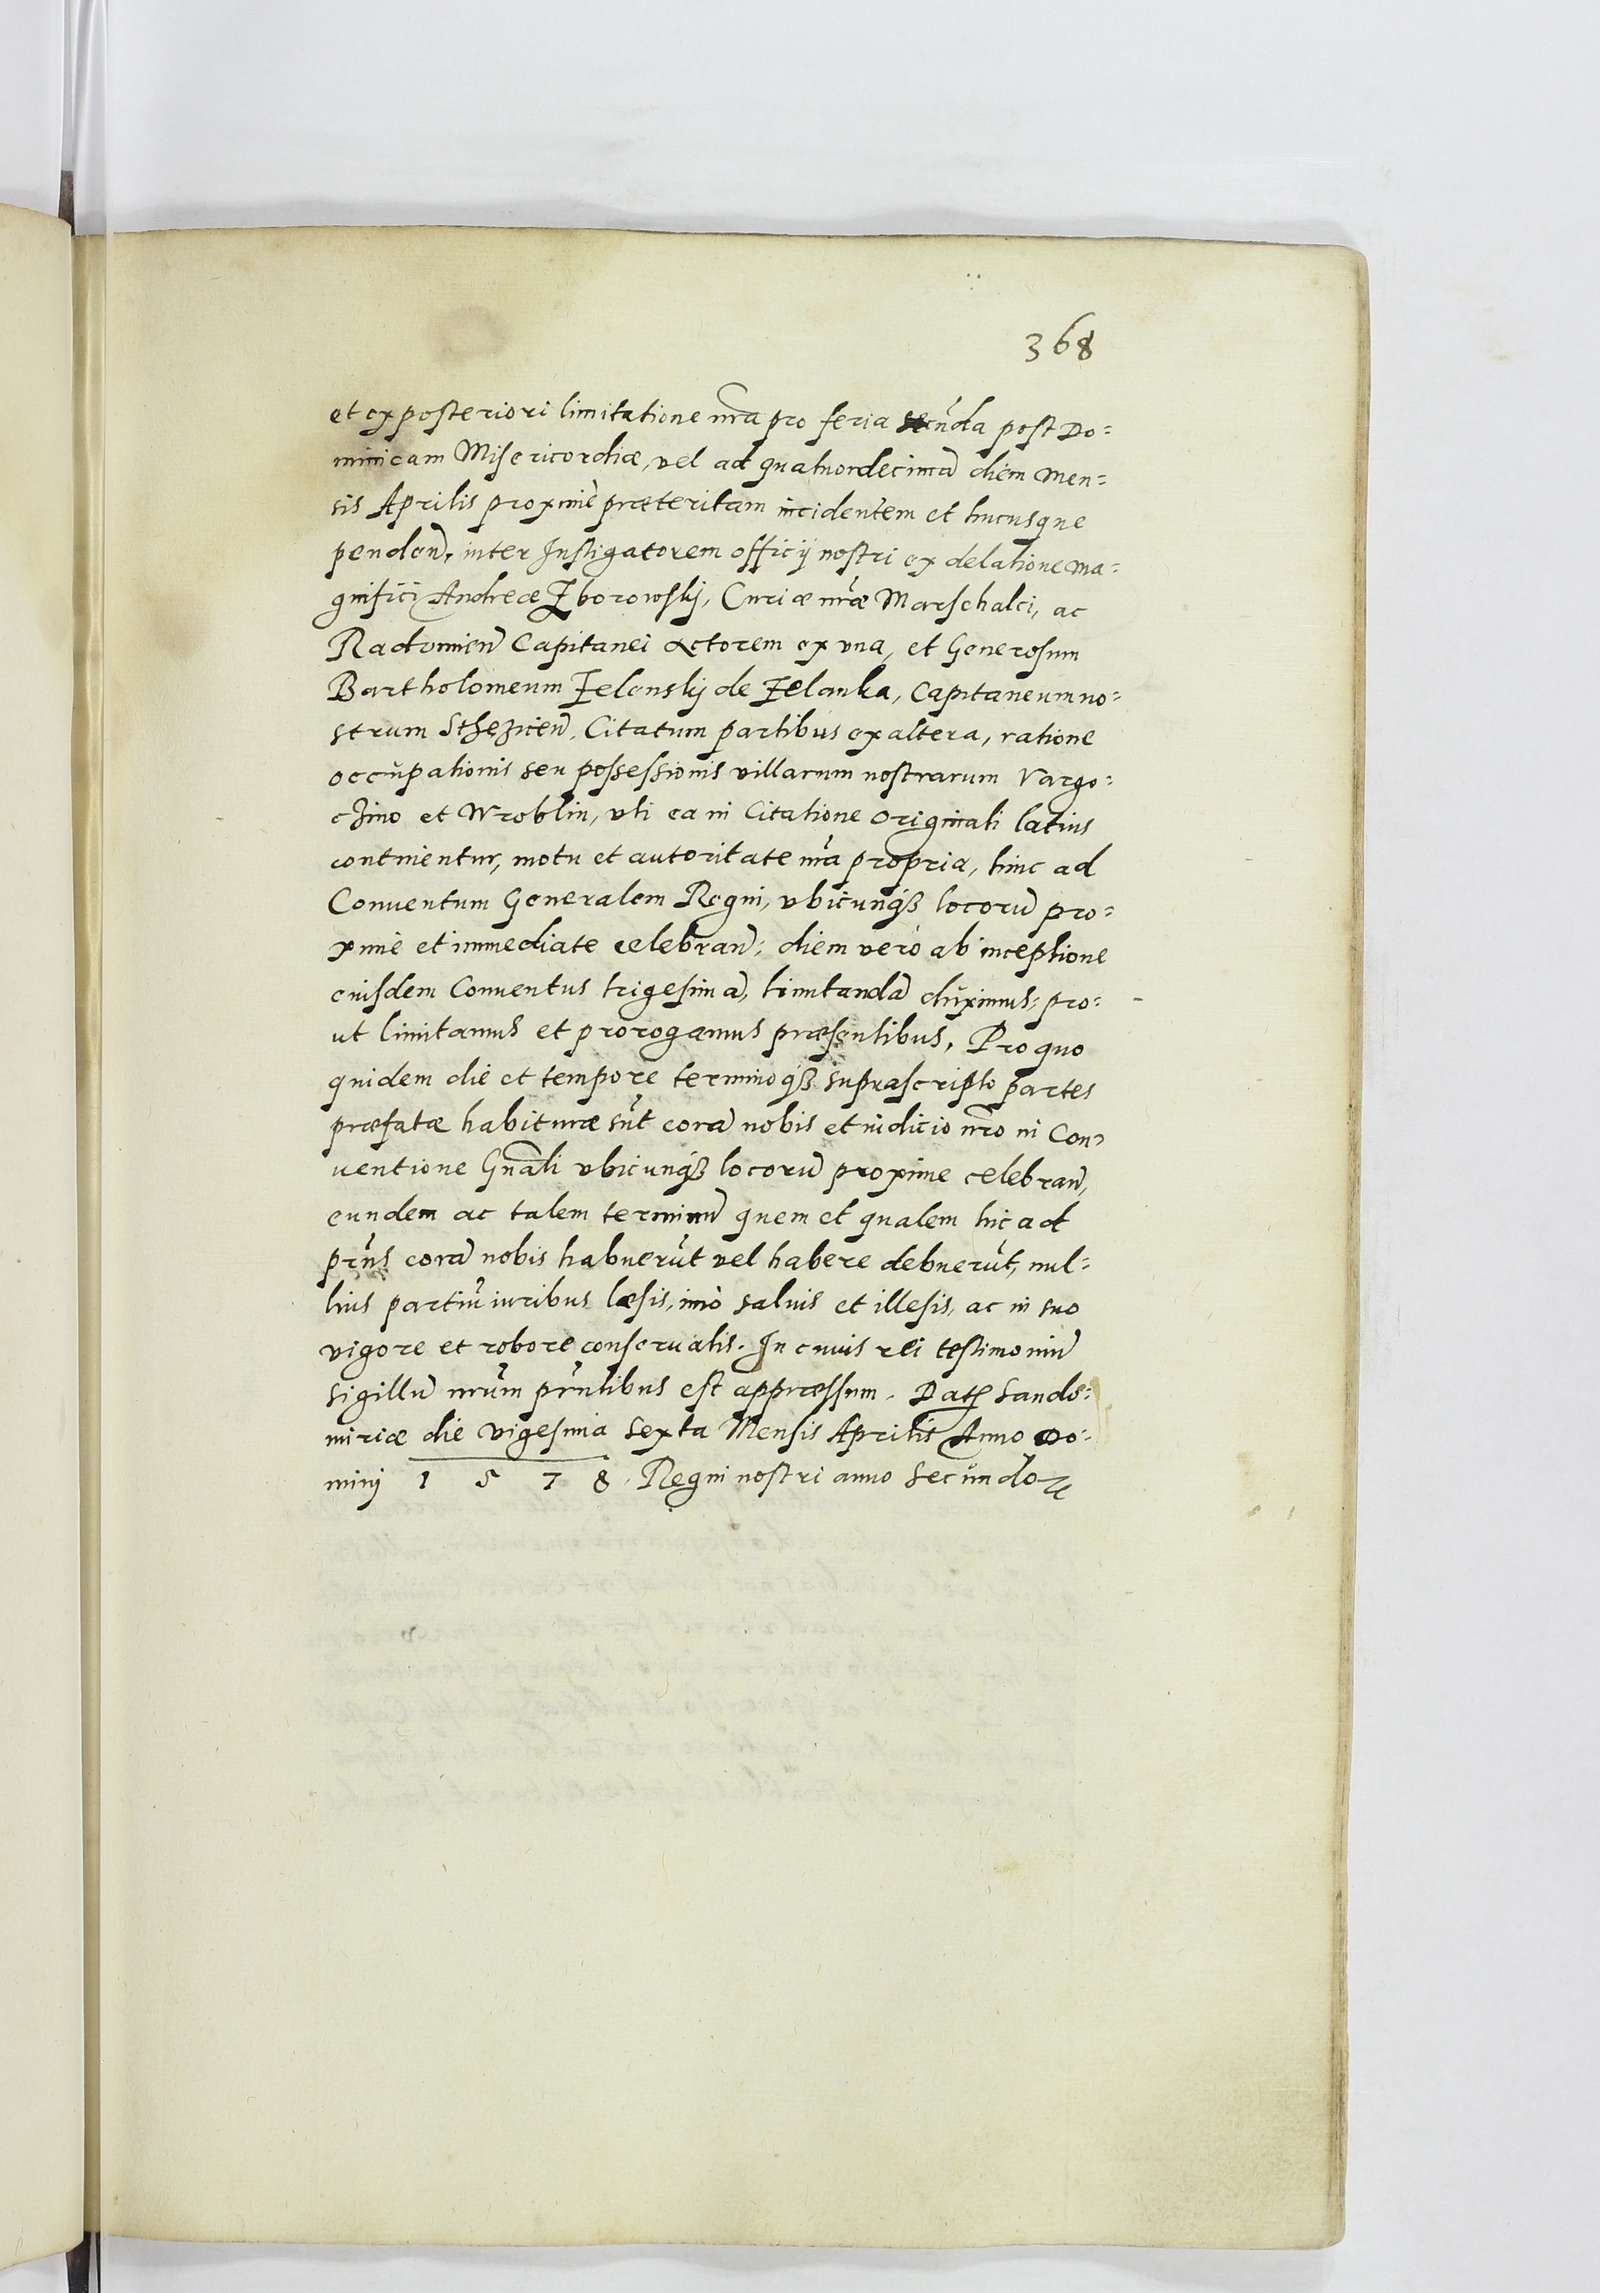 368
et ex posteriori limitatione nr̃a pro feria secũda post Do=
minicam Misericordiæ, vel ad quatuordecimã diem Men=
sis Aprilis proximè præteritam incidentem et hucusque
penden̄, inter Instigatorem officij nostri ex delatione Ma=
gnifici Andreæ Zborowskj, Curiæ nr̃æ Marschalci, ac
Radomien̄ Capitanei Actorem ex una, et Generosum
Bartholomeum Zelenskj de Zelanka, Capitaneum no=
strum Sthezicen̄. Citatum partibus ex altera, ratione
occupationis seu possessionis villarum nostrarum Vargo=
czino et Wroblin, uti ea in Citatione Originali latius
continentur, motu et autoritate nr̃a propria, hinc ad
Conventum Generalem Regni, ubicunq̃ locorũ pro=
xime et immediate celebran̄: diem verò ab inceptione
eiusdem Conventus trigesimã, limitandã duximus, pro=
ut limitamus et prorogamus præsentibus. Pro quo
quidem die et tempore terminoq̃ suprascripto partes
præfatæ habituræ sũt corã nobis et iudicio nr̃o in Con=
ventione Gñali ubicunq̃ locorũ proxime celebran̄,
eundem ac talem terminũ quem et qualem hic ad
prñs corã nobis habuerũt vel habere debuerũt, nul=
lius partiũ iuribus læsis, imò salvis et illesis, ac in suo
vigore et robore conservatis. In cuius rei testimoniũ
sigillũ nr̃um prñtibus est appræssum. Datꝭ Sando=
miriæ die vigesima sexta Mensis Aprilis Anno Do=
minj 1 5 7 8. Regni nostri anno secundo